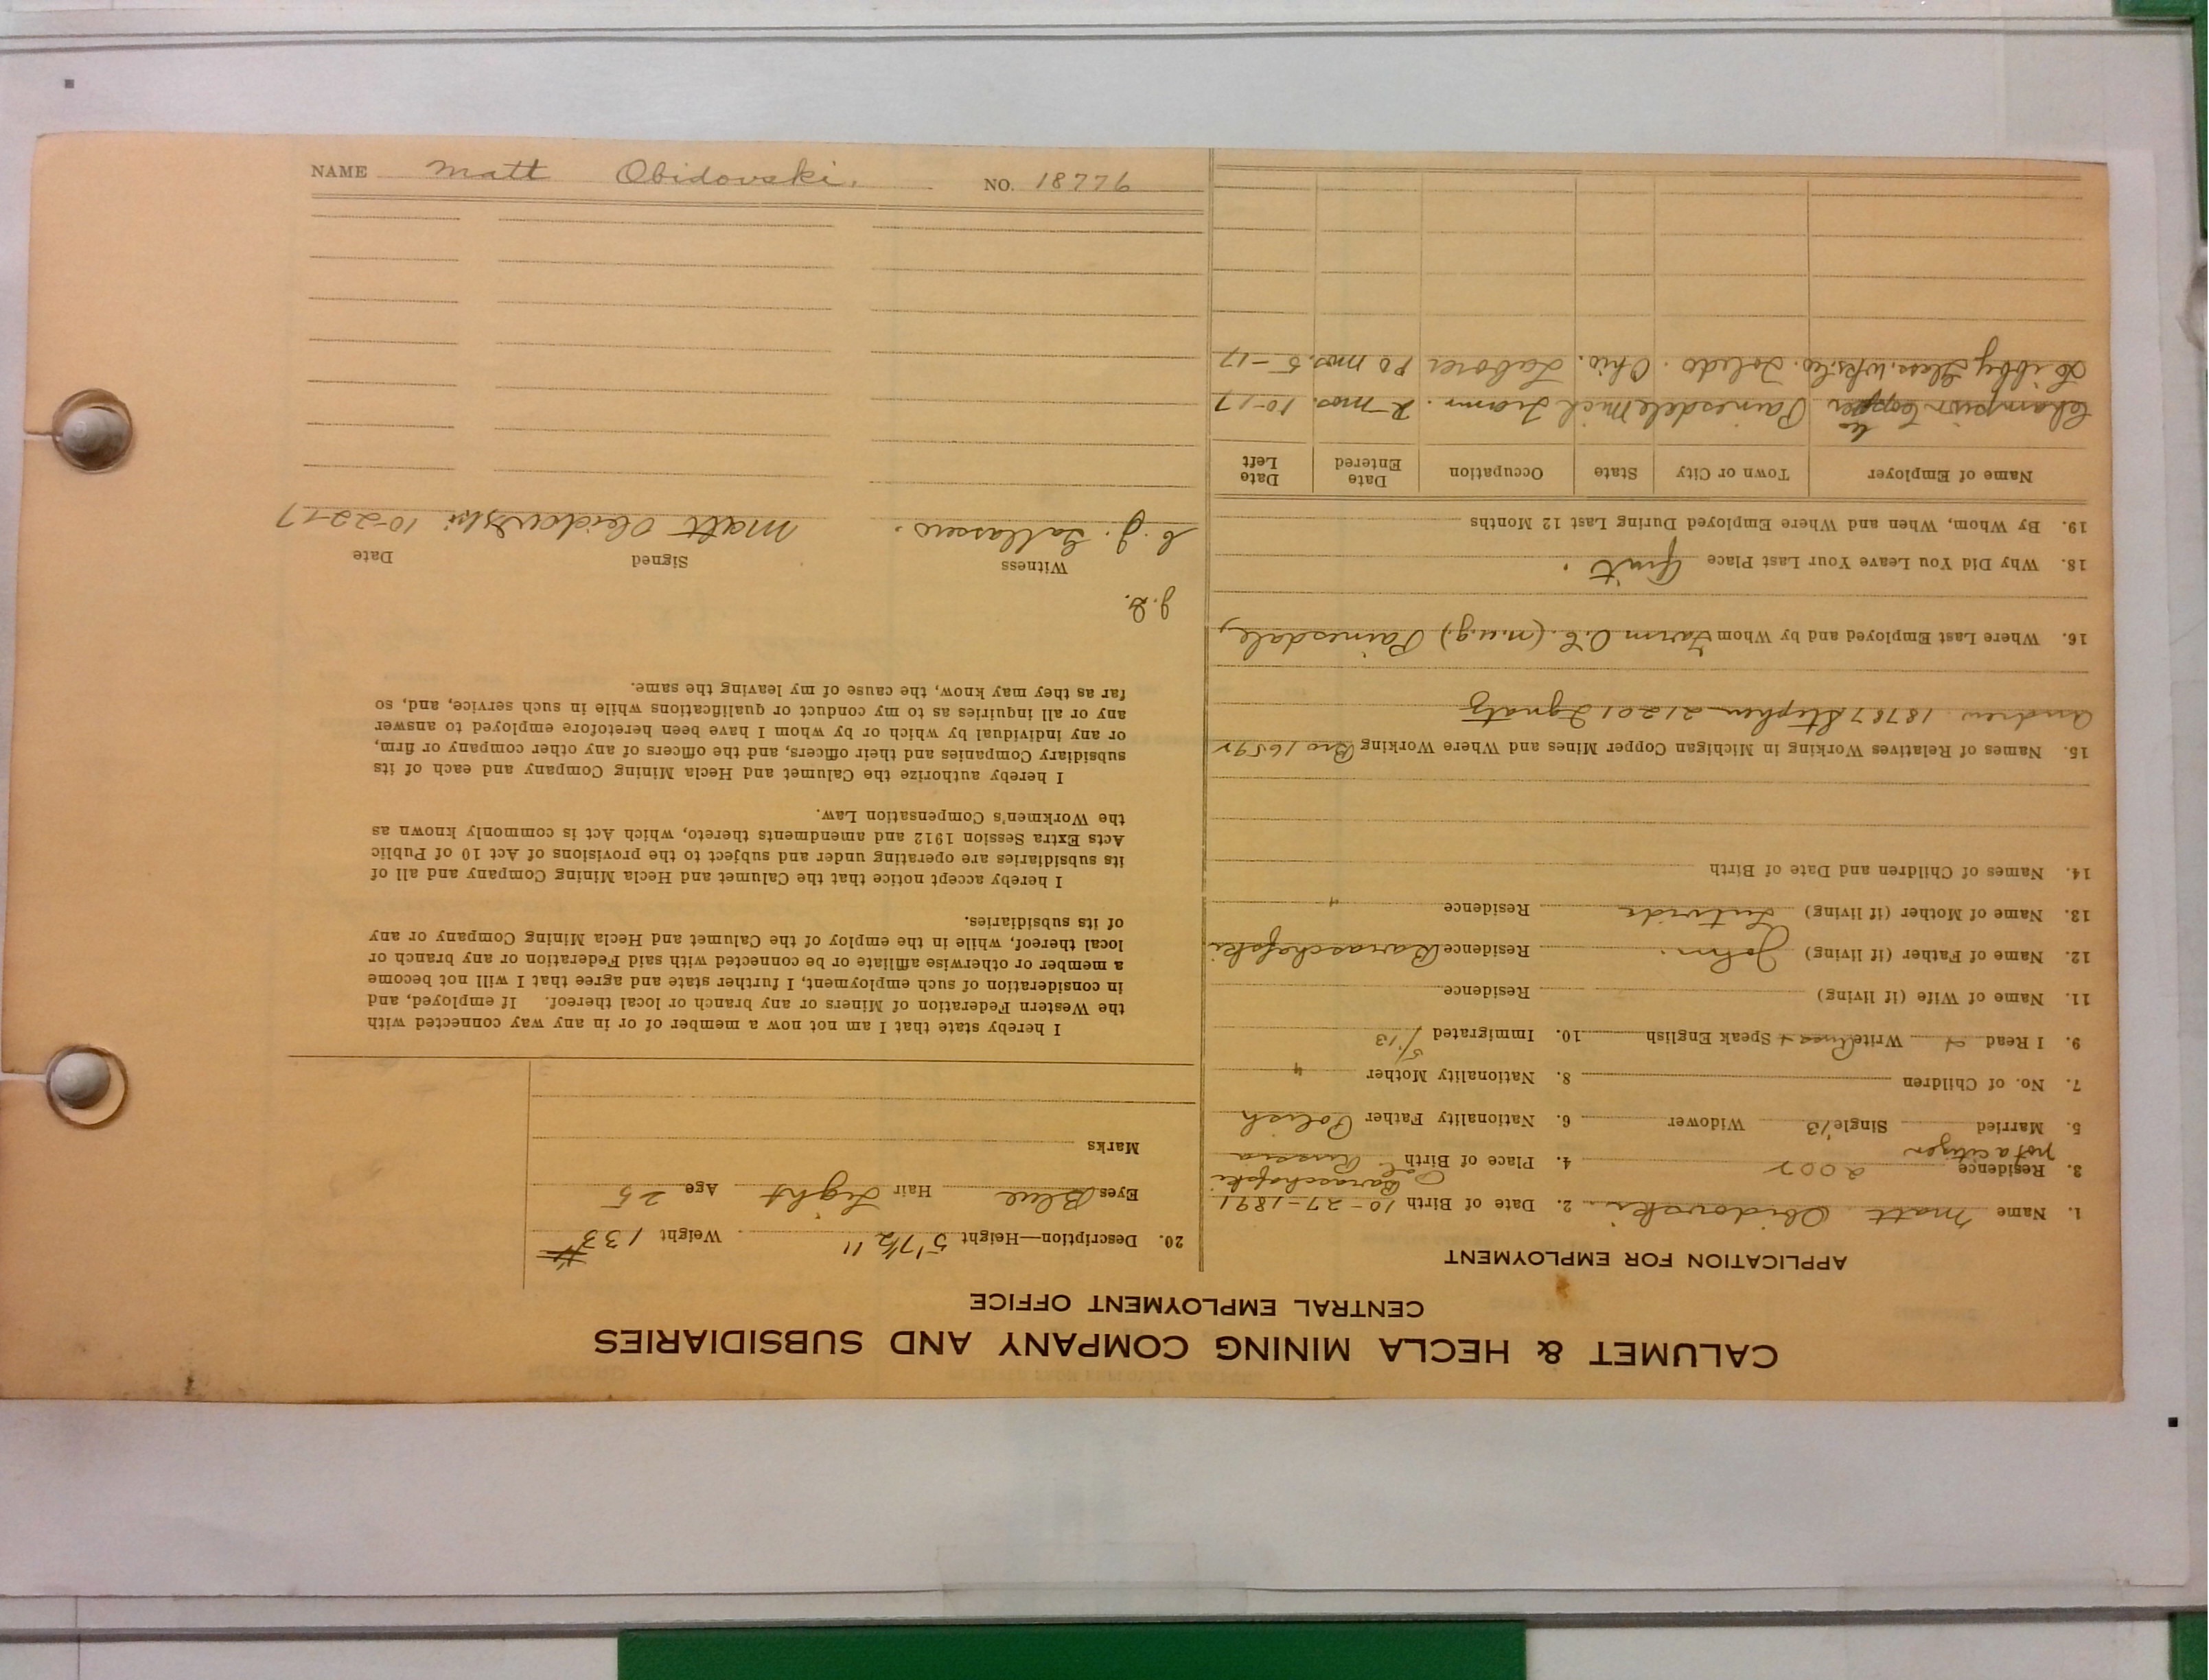 CALUMET & HECLA MINING COMPANY AND SUBSIDIARIES
CENTRAL EMPLOYMENT OFFICE
APPLICATION FOR EMPLOYMENT
1. Name Matt Obidovski. 2. Date of Birth 10-27-1891
3. Residence 2007 4. Place of Birth Russia
not a citizen
5. Married Single '13 Widower 6. Nationality Father Polish
7. No. of Children 8. Nationality Mother "
9. I Read Write Speak English 10. Immigrated 5/'13
11. Name of Wife (if living) Residence
12. Name of Father (if living) John. Residence
13. Name of Mother (if living) Residence "
14. Names of Children and Date of Birth
15. Names of Relatives Working in Michigan Copper Mines and Where Working Bro
Andrew 18787 Stephen 21201 Ignatz
16. Where Last Employed and by Whom (n.u.g.) Painesdale,
18. Why Did You Leave Your Last Place Quit.
19. By Whom, When and Where Employed During Last 12 Months
Name of Employer Town or City State Occupation Date Entered Date Left
Champion Copper Co Painesdale Mich Tram. 2 mos. 10-17
Libby Glass. Wks. Co. Toledo. Ohio. Laborer 10 mos. 5-17
20. Description—Height 5'7½" Weight 133 #
Eyes Blue Hair Light Age 25
Marks
I hereby state that I am not now a member of or in any way connected with
the Western Federation of Miners or any branch or local thereof. If employed, and
in consideration of such employment, I further state and agree that I will not become
a member or otherwise affiliate or be connected with said Federation or any branch or
local thereof, while in the employ of the Calumet and Hecla Mining Company or any
of its subsidiaries.
I hereby accept notice that the Calumet and Hecla Mining Company and all of
its subsidiaries are operating under and subject to the provisions of Act 10 of Public
Acts Extra Session 1912 and amendments thereto, which Act is commonly known as
the Workmen's Compensation Law.
I hereby authorize the Calumet and Hecla Mining Company and each of its
subsidiary Companies and their officers, and the officers of any other company or firm,
or any individual by which or by whom I have been heretofore employed to answer
any or all inquiries as to my conduct or qualifications while in such service, and, so
far as they may know, the cause of my leaving the same.
Witness Signed Date
Matt 10-22-17
NAME Matt Obidovski. NO. 18776